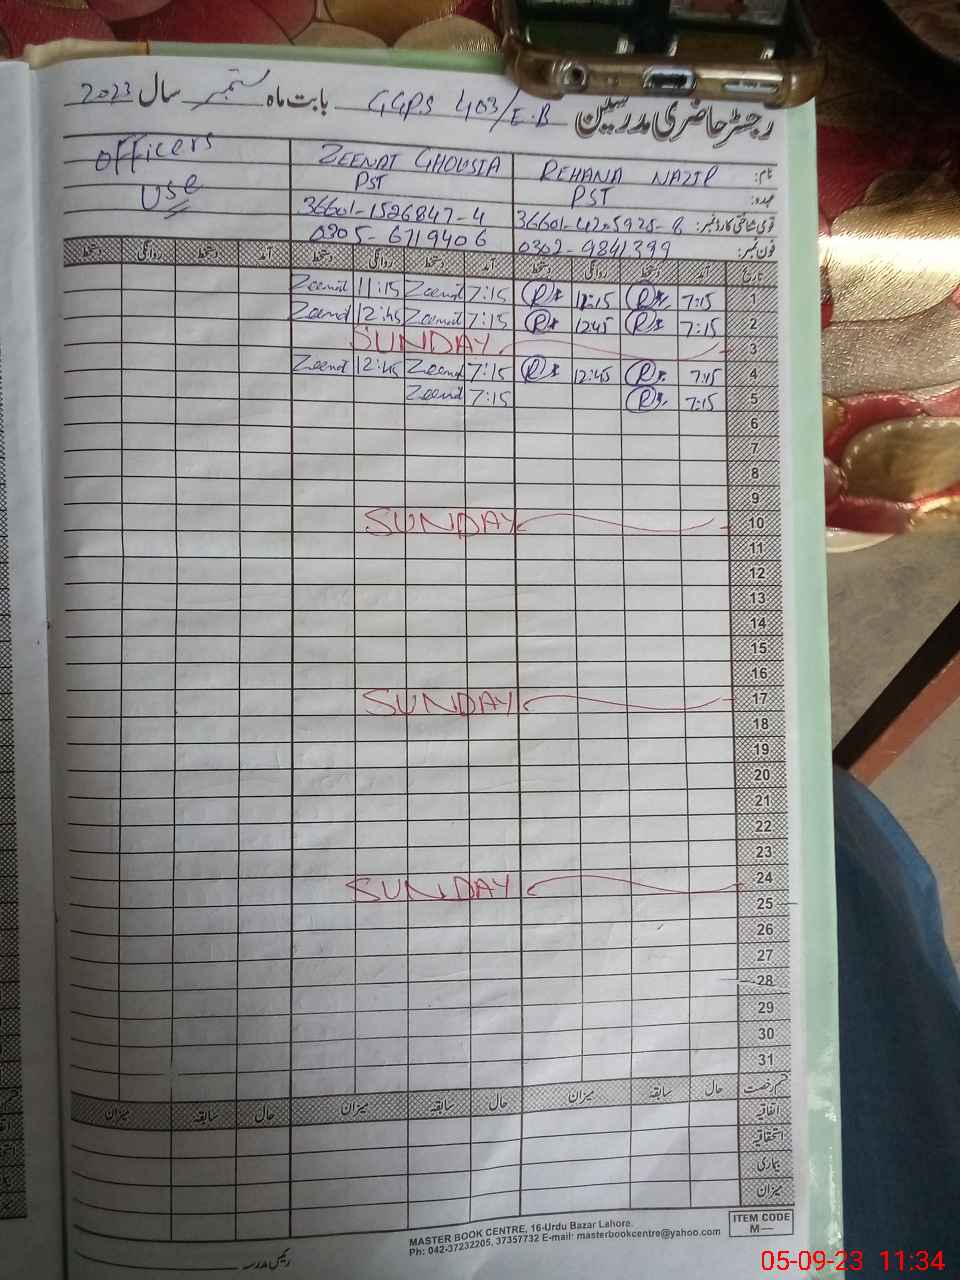 رجسٹر حاضری مدرسین GGPS 403/E.B بابت ماہ ستمبر سال 2023
نام: REHANA NAZIR ZEENAT GHOUSIA OFFICERS
عہدہ: PST PST USE
قومی شناختی کارڈ نمبر: 36601-1526847-4
فون نمبر: 0302-9841399 0305-6719406
تاریخ آمد دستخط روانگی دستخط آمد دستخط روانگی دستخط آمد دستخط روانگی دستخط
1 7:15 R 11:15 R 7:15 Zeenat 11:15 Zeenat
2 7:15 R 1245 R 7:15 Zeenat 12:45 Zeenat
3 SUNDAY
4 7:15 R 12:45 R 7:15 Zeenat 12:45 Zeenat
5 7:15 R 7:15 Zeenat
6
7
8
9
10 SUNDAY
11
12
13
14
15
16
17 SUNDAY
18
19
20
21
22
23
24 SUNDAY
25
26
27
28
29
30
31
قسم رخصت حال سابقہ میزان حال سابقہ میزان حال سابقہ میزان
اتفاقیہ
استحقاقیہ
بیماری
میزان
ITEM CODE
M—
MASTER BOOK CENTRE, 16-Urdu Bazar Lahore.
Ph: 042-37232205, 37357732 E-mail: masterbookcentre@yahoo.com
رئیس مدرسہ
05-09-23 11:34